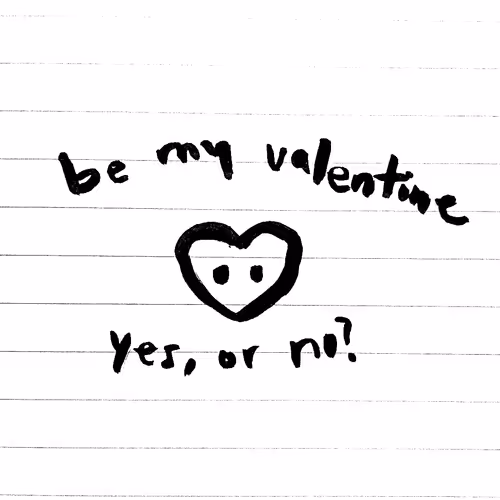 be my valentine
yes, or no?